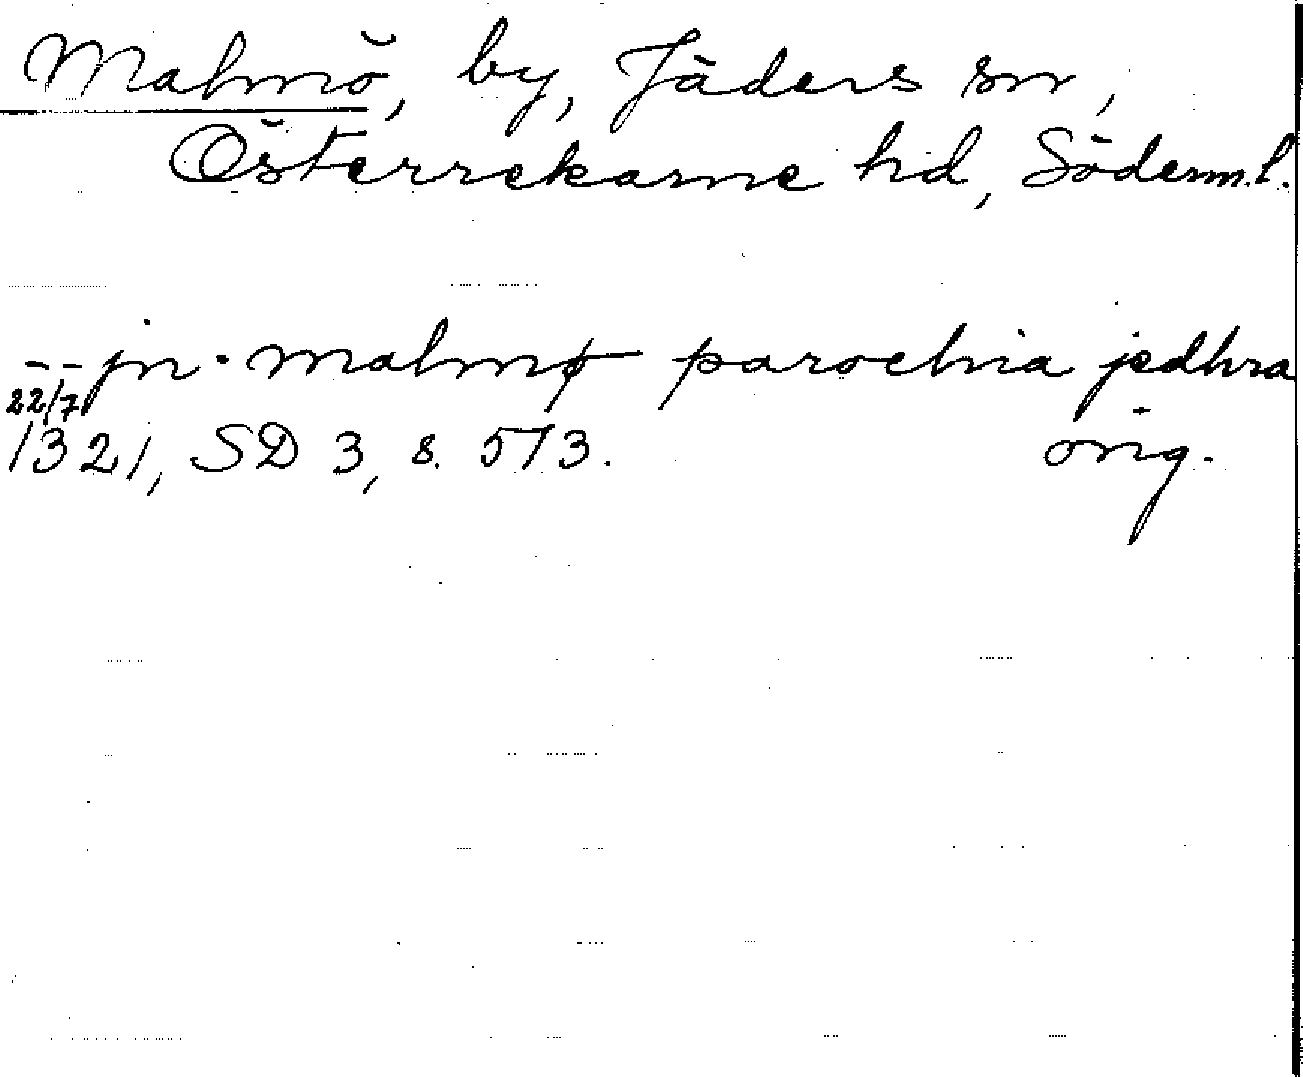 Malmö, by, Jäders sn,
Österrekarne hd, Söderm.l.
-- jn · malmø parochia jedhra
22/7
1321, SD 3, s. 573. orig.